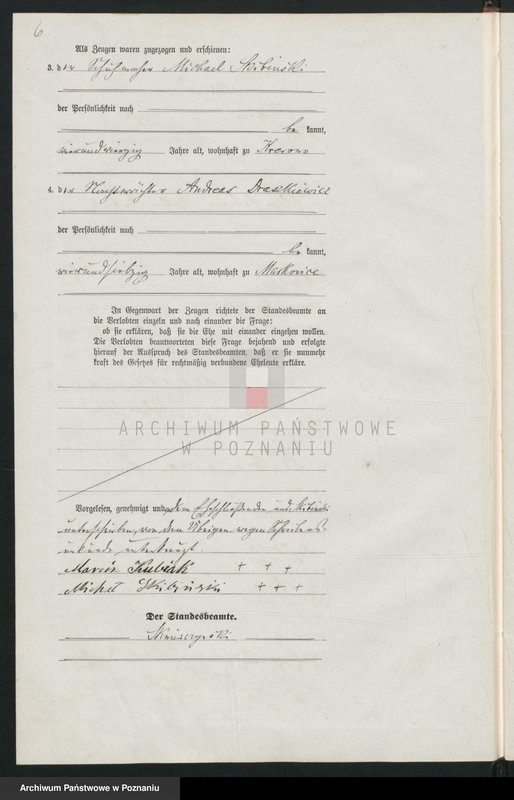 6
Als Zeugen waren zugezogen und erschienen:
3. der Schuhmacher Michael Skibinski
der Persönlichkeit nach
be kannt,
vierundvierzig Jahre alt, wohnhaft zu
4. der Nachtwächter Andreas Draszkiewicz
der Persönlichkeit nach
be kannt,
vierundsiebzig Jahre alt, wohnhaft zu
In Gegenwart der Zeugen richtete der Standesbeamte an
die Verlobten einzeln und nach einander die Frage:
ob sie erklären, daß sie die Ehe mit einander eingehen wollen.
Die Verlobten beantworteten diese Frage bejahend und erfolgte
hierauf der Ausspruch des Standesbeamten, daß er sie nunmehr
kraft des Gesetzes für rechtmäßig verbundene Eheleute erkläre.
ARCHIWUM PAŃSTWOWE
W POZNANIU
Vorgelesen, genehmigt und von dem Eheschließenden und Skibinski
unterschrieben, von den Übrigen wegen Schreibens-
unkunde unterkreuzt.
Marcin Kubiak + + +
Michał Skibiński + + +
Der Standesbeamte.
Archiwum Państwowe w Poznaniu